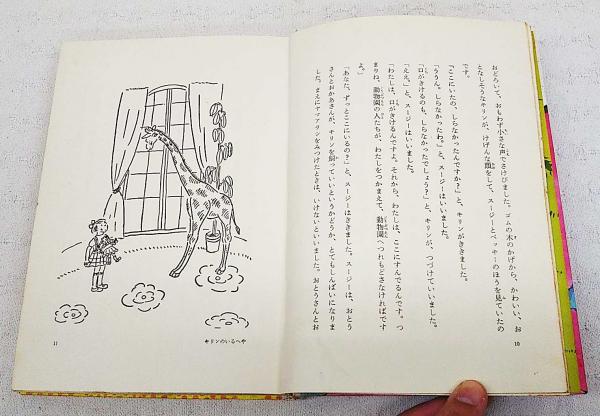 おどろいて、おもわず小さな声でさけびました。ゴムの木のかげから、かわいい、お
となしそうなキリンが、けげんな顔をして、スージーとベッキーのほうを見ていたの
です。
「ここにいたの、しらなかったんですか？」と、キリンがききました。
「ううん。しらなかったわ。」と、スージーはいいました。
「口がきけるのも、しらなかったでしょう？」と、キリンが、つづけていいました。
「ええ。」と、スージーはいいました。
「わたしは、口がきけるんですよ。それから、わたしは、ここにすんでるんです。つ
まりね、動物園の人たちが、わたしをつかまえて、動物園へつれもどさなければです
よ。」
「あなた、ずっとここにいるの？」と、スージーはききました。スージーは、おとう
さんとおかあさんが、キリンを飼っていいというかどうか、とてもしんぱいになりま
した。まえにヤマアラシをみつけたときは、いけないといいました。おとうさんとお
10
キリンのいるへや
11